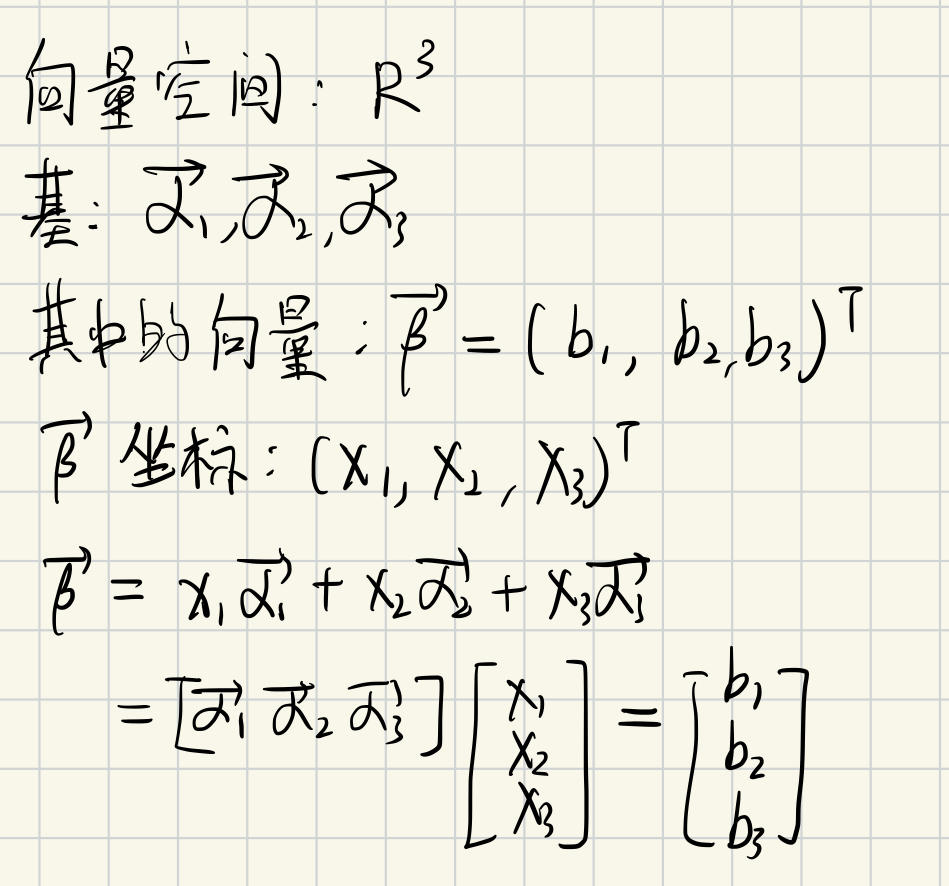 向量空间: R³
基: α⃗₁, α⃗₂, α⃗₃
其中的向量: β⃗ = (b₁, b₂, b₃)ᵀ
β⃗ 坐标: (x₁, x₂, x₃)ᵀ
β⃗ = x₁α⃗₁ + x₂α⃗₂ + x₃α⃗₃
= [α⃗₁ α⃗₂ α⃗₃] [x₁ x₂ x₃] = [b₁ b₂ b₃]